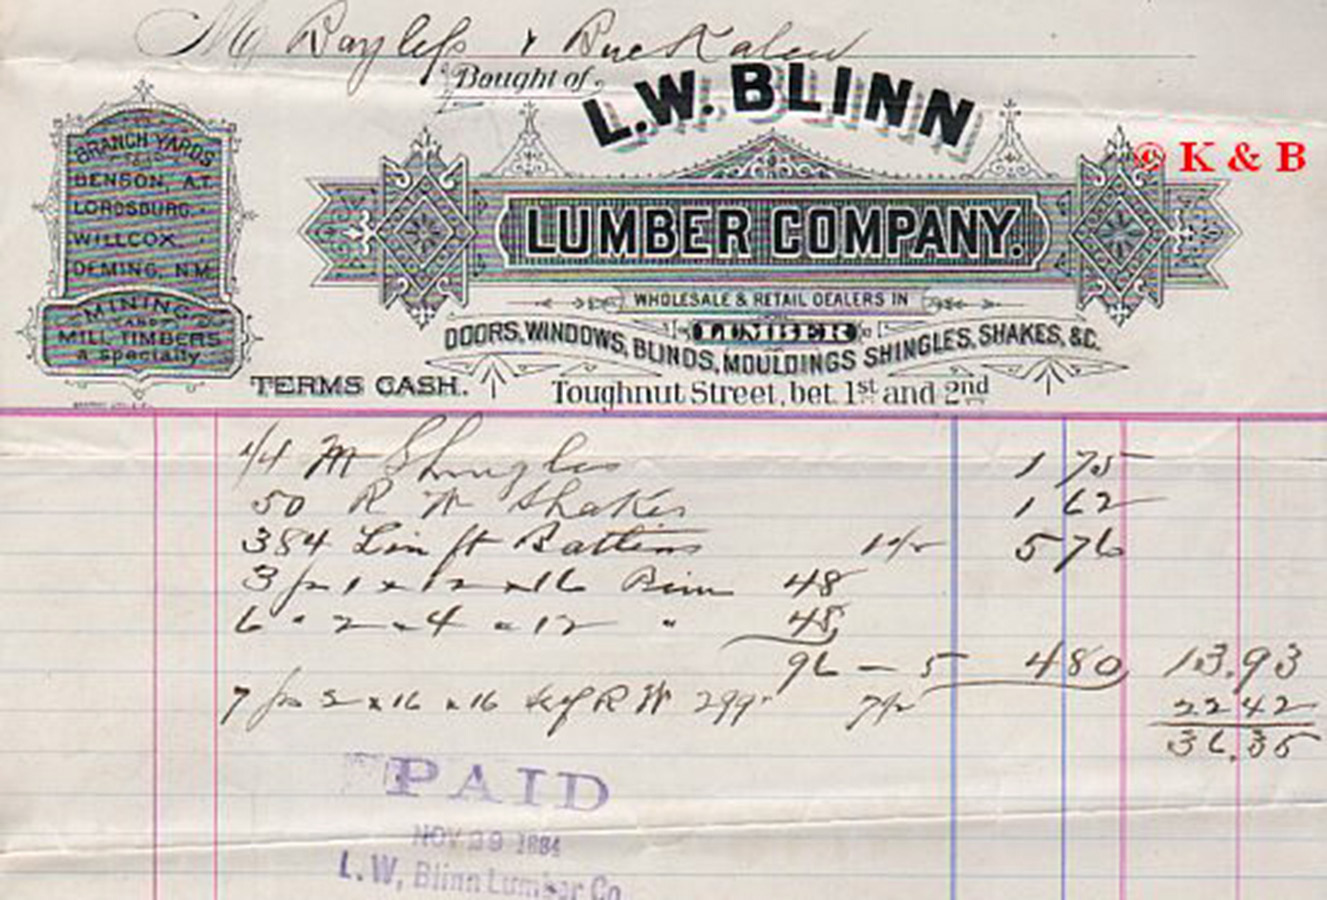 Bayless & Buckalew
Bought of
L.W. BLINN
© K & B
LUMBER COMPANY.
BRANCH YARDS
BENSON, A.T.
LORDSBURG
WILLCOX
DEMING, N.M.
MINING
AND
MILL TIMBERS
a specialty.
WHOLESALE & RETAIL DEALERS IN
LUMBER
DOORS, WINDOWS, BLINDS, MOULDINGS SHINGLES, SHAKES, &C.
TERMS CASH.
Toughnut Street, bet. 1st and 2nd
1/4 M Shingles 1 75
50 R W Shakes 1 62
384 Lin ft Battens 1 1/2 5 76
3 1 x 12 x 16 48
6 " 2 x 4 x 12 " 48
96 - 5 4 80 13.93
7 x 16 x 16 R W 299 7 1/2 22 42
36.35
PAID
NOV 29 1884
L. W. Blinn Lumber Co.